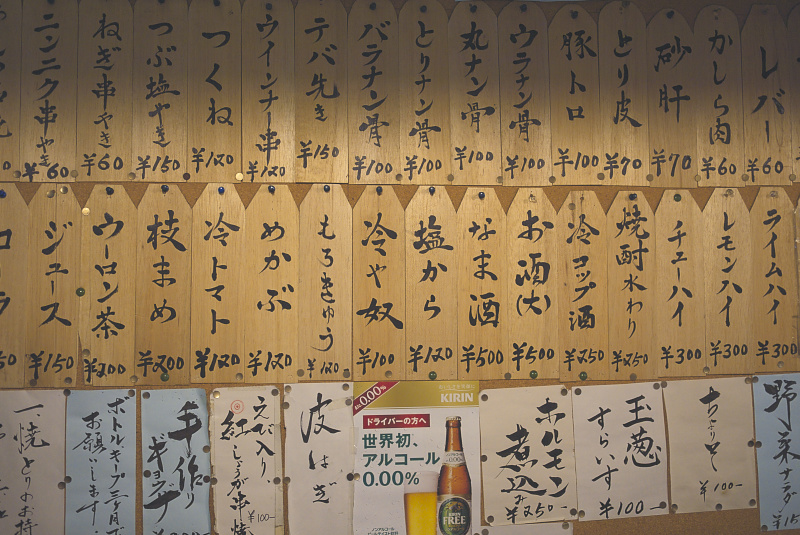 レバー ¥60
かしら肉 ¥60
砂肝 ¥70
とり皮 ¥70
豚トロ ¥100
ウラナン骨 ¥100
丸ナン骨 ¥100
とりナン骨 ¥100
バラナン骨 ¥100
テバ先き ¥150
ウインナー串 ¥120
つくね ¥120
つぶ塩やき ¥150
ねぎ串やき ¥60
ニンニク串やき ¥60
ライムハイ ¥300
レモンハイ ¥300
チューハイ ¥300
焼酎水わり ¥250
冷コップ酒 ¥250
お酒(大) ¥500
なま酒 ¥500
塩から ¥120
冷や奴 ¥100
もろきゅう ¥120
めかぶ ¥120
冷トマト ¥120
枝まめ ¥200
ウーロン茶 ¥200
ジュース ¥150
野菜サラダ
¥100-
玉葱
すらいす
¥100-
ホルモン
煮込み
¥250-
ALC.0.00%
KIRIN
ドライバーの方へ
世界初、
アルコール
0.00%
KIRIN
FREE
皮はぎ
えび入り
紅しょうが串焼
¥100-
手作り
ギョウザ
ボトルキープ三ヶ月で
お願いします
一、焼とりのお持